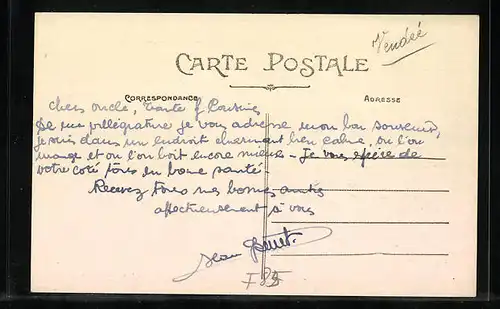 Vendée
CARTE POSTALE
CORRESPONDANCE
ADRESSE
chers oncle, tante & Cousins
De ma villégiature je vous adresse mon bon souvenir,
je suis dans un endroit charmant bien calme, ou l'on
mange et ou l'on boit encore mieux - Je vous espère de
votre coté tous en bonne santé
Recevez tous mes bonnes amitiés
affectueusement à vous
Jean
I 85